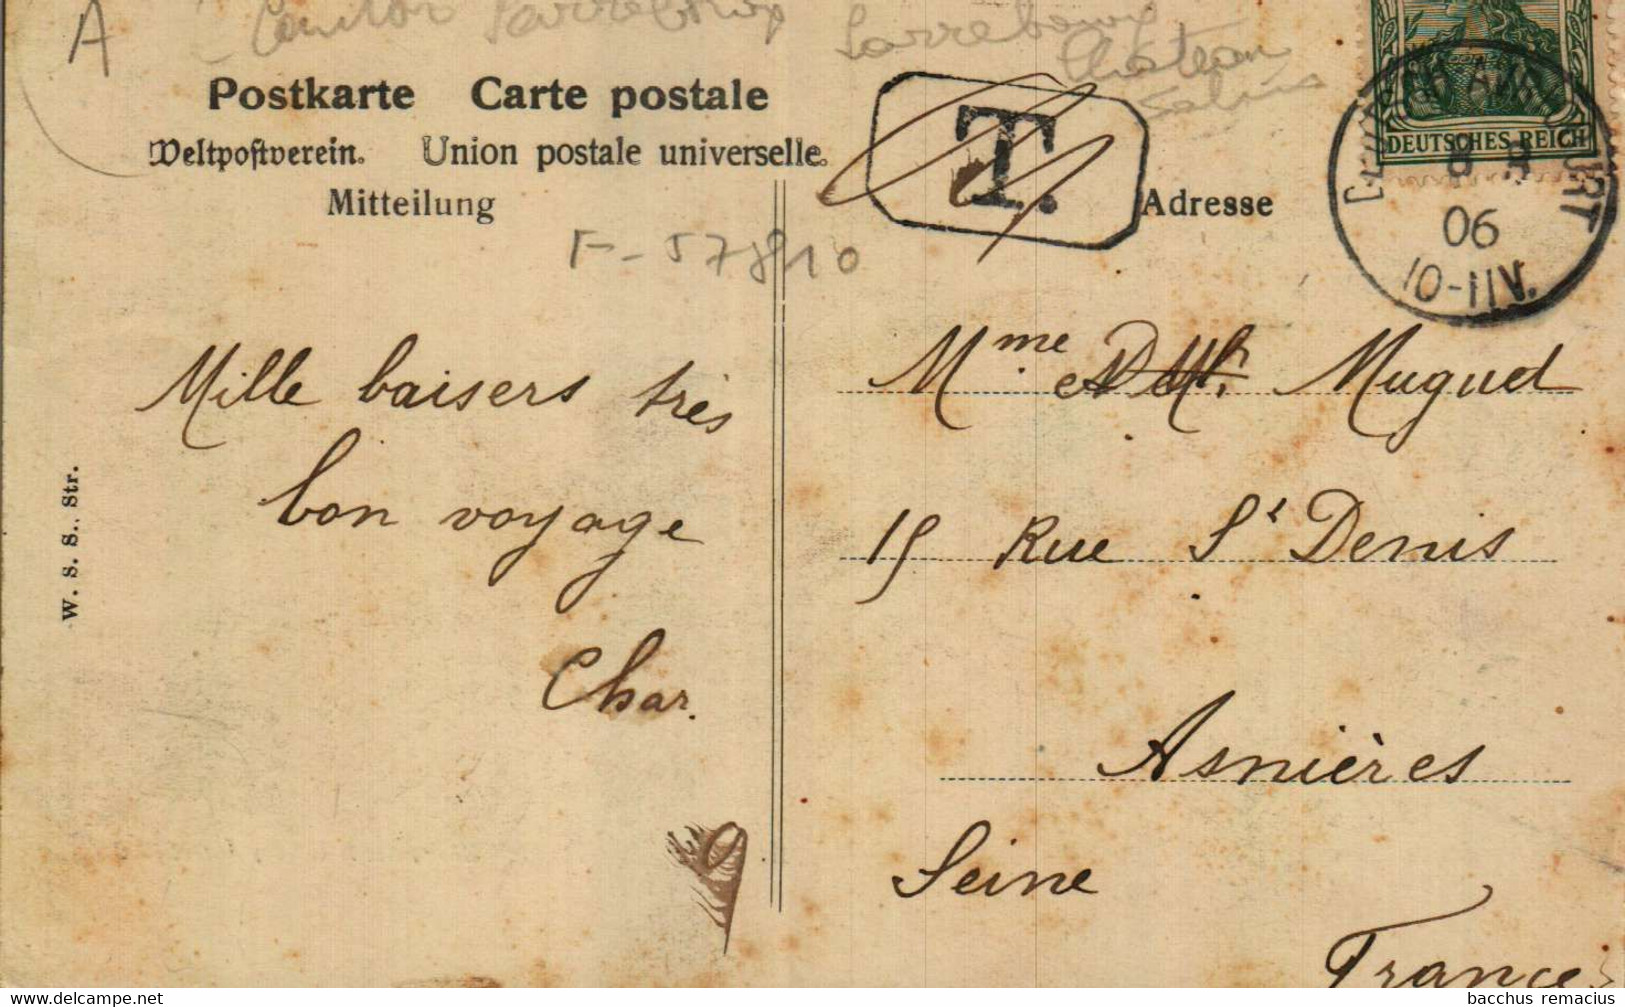 A
Canton Sarrebourg Sarrebourg
Château
Salins
Postkarte Carte postale
Weltpostverein. Union postale universelle.
Mitteilung
T.
Adresse
DEUTSCHES REICH
06
10-11V.
F-57810
Mille baisers très
bon voyage
Char.
W. S. S., Str.
Mme Muguet
15 Rue St Denis
Asnières
Seine
France
bacchus remacius